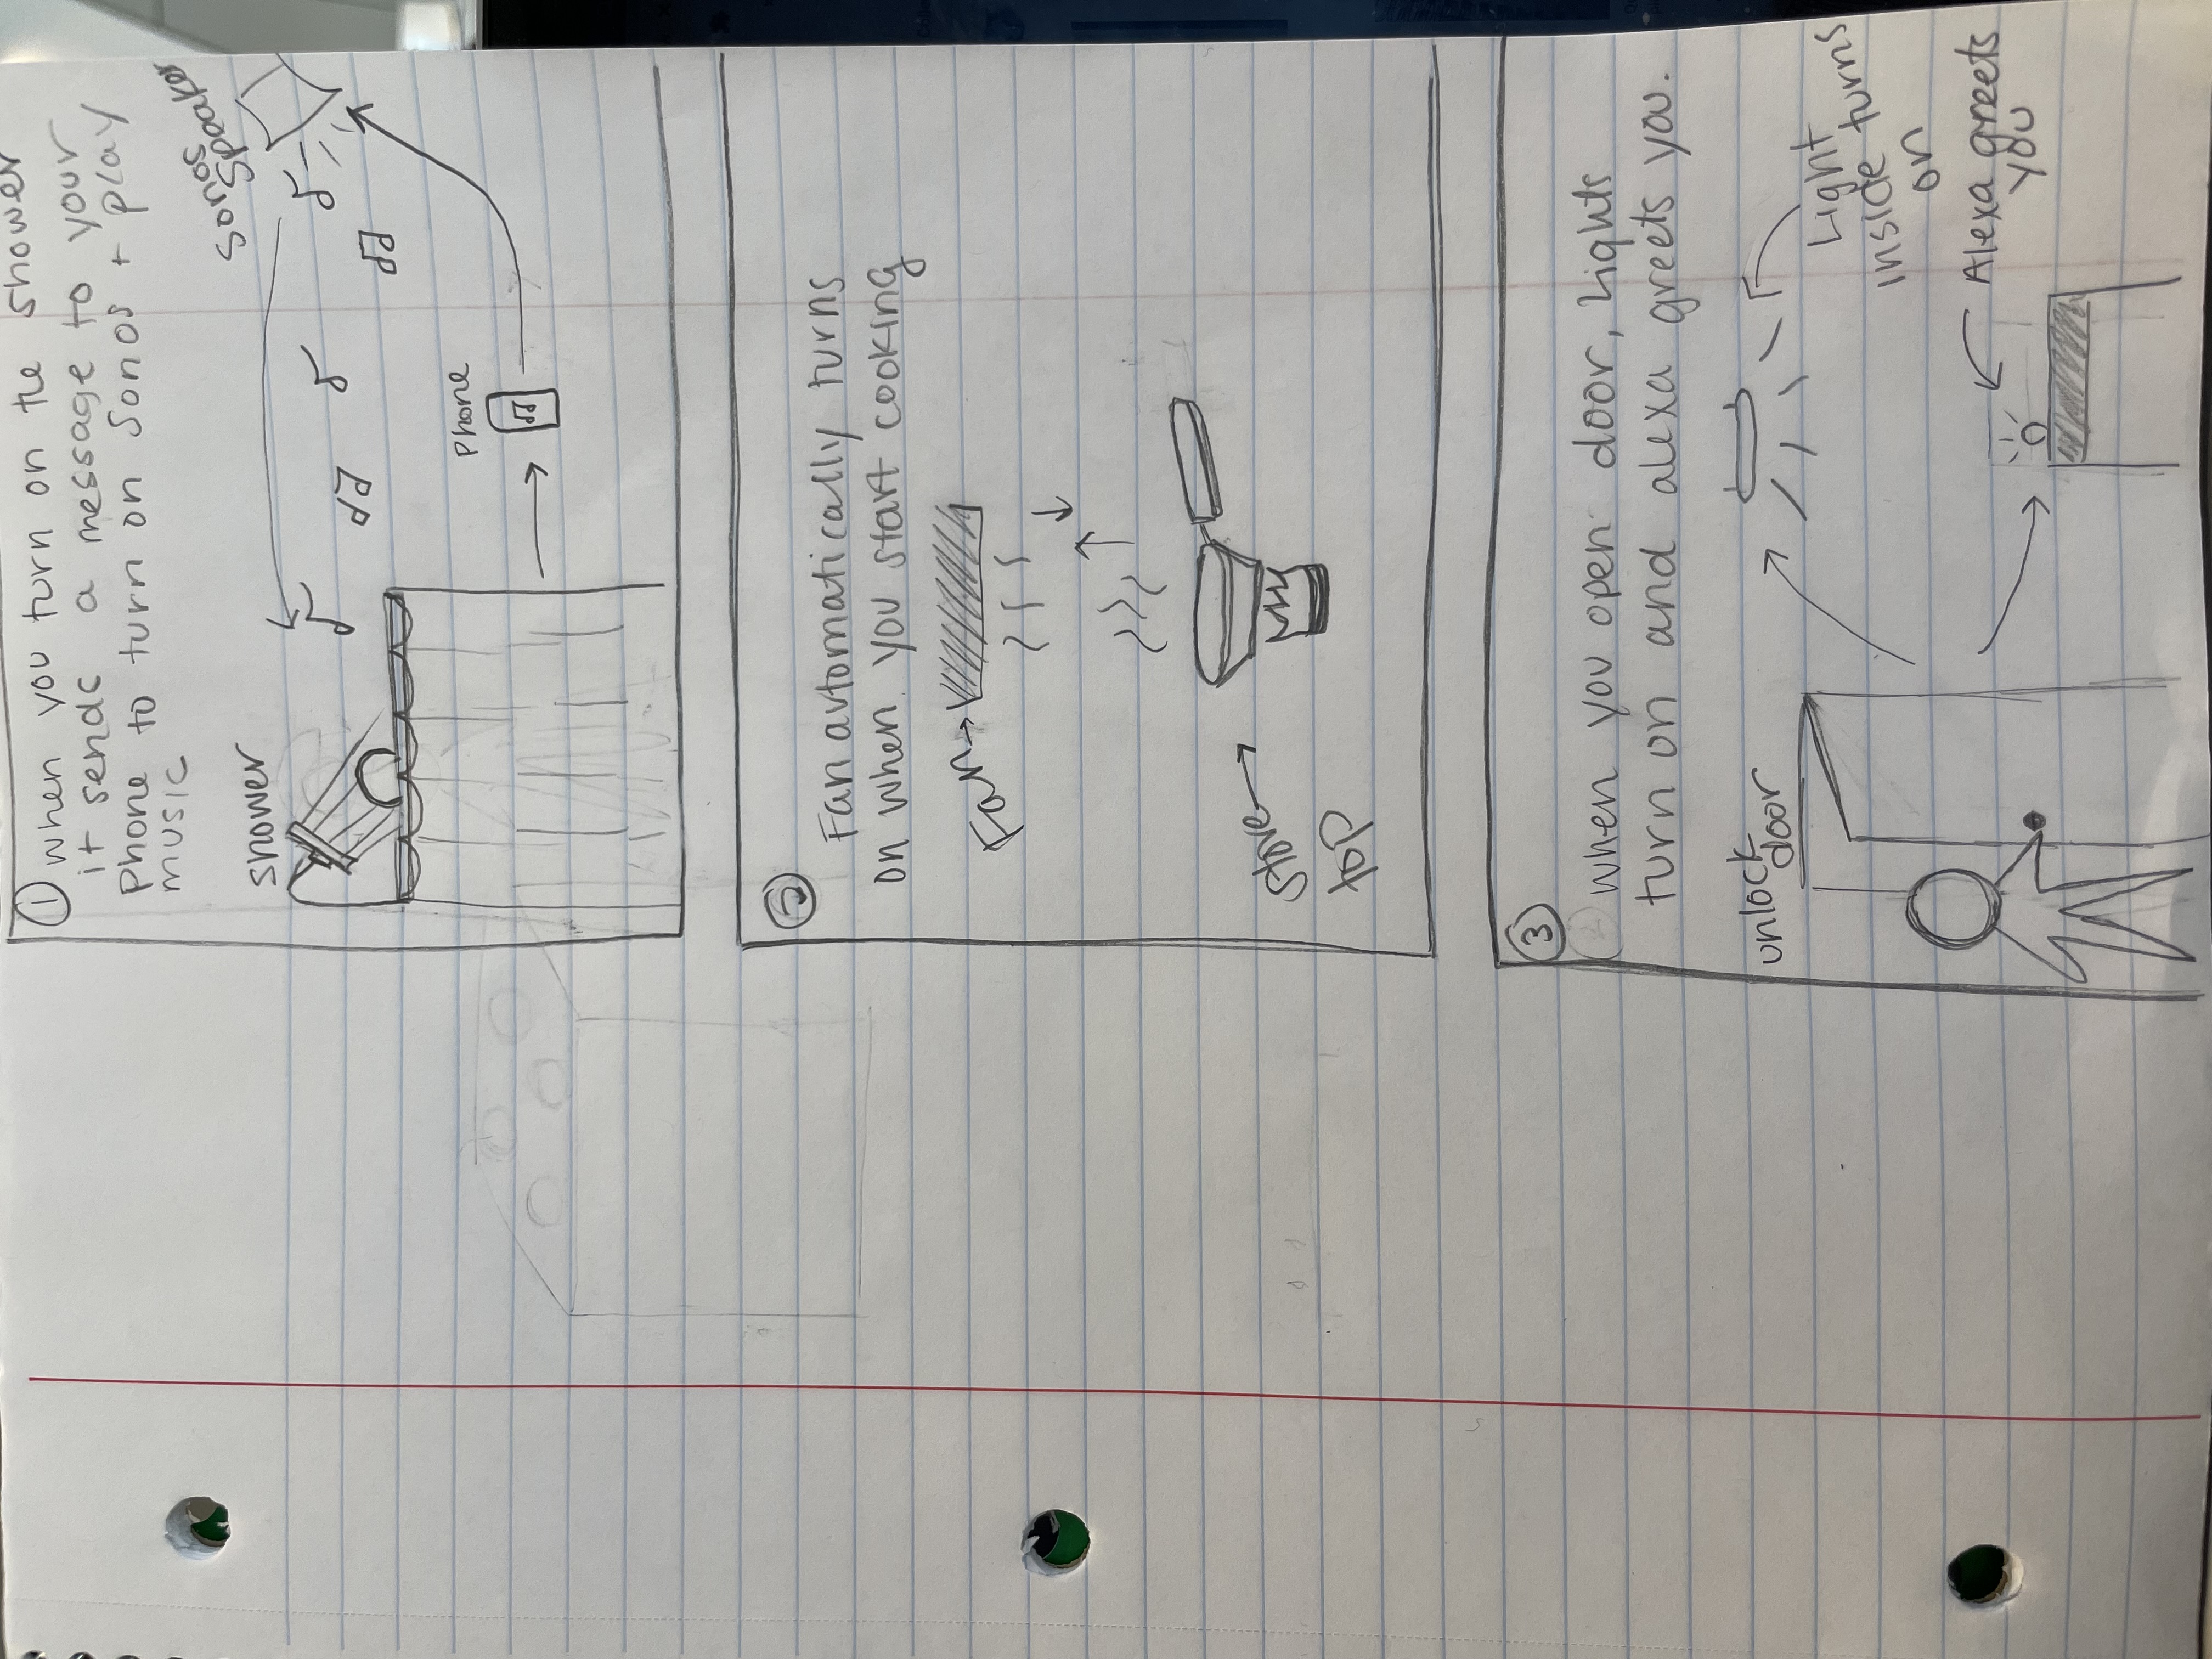 ① when you turn on the shower
it sends a message to your
phone to turn on Sonos + play
music
Sonos
Speaker
shower
Phone
②
Fan automatically turns
on when you start cooking
Fan
stove
top
③
when you open door, Lights
turn on and alexa greets you.
unlock
door
Light
inside turns
on
Alexa greets
you